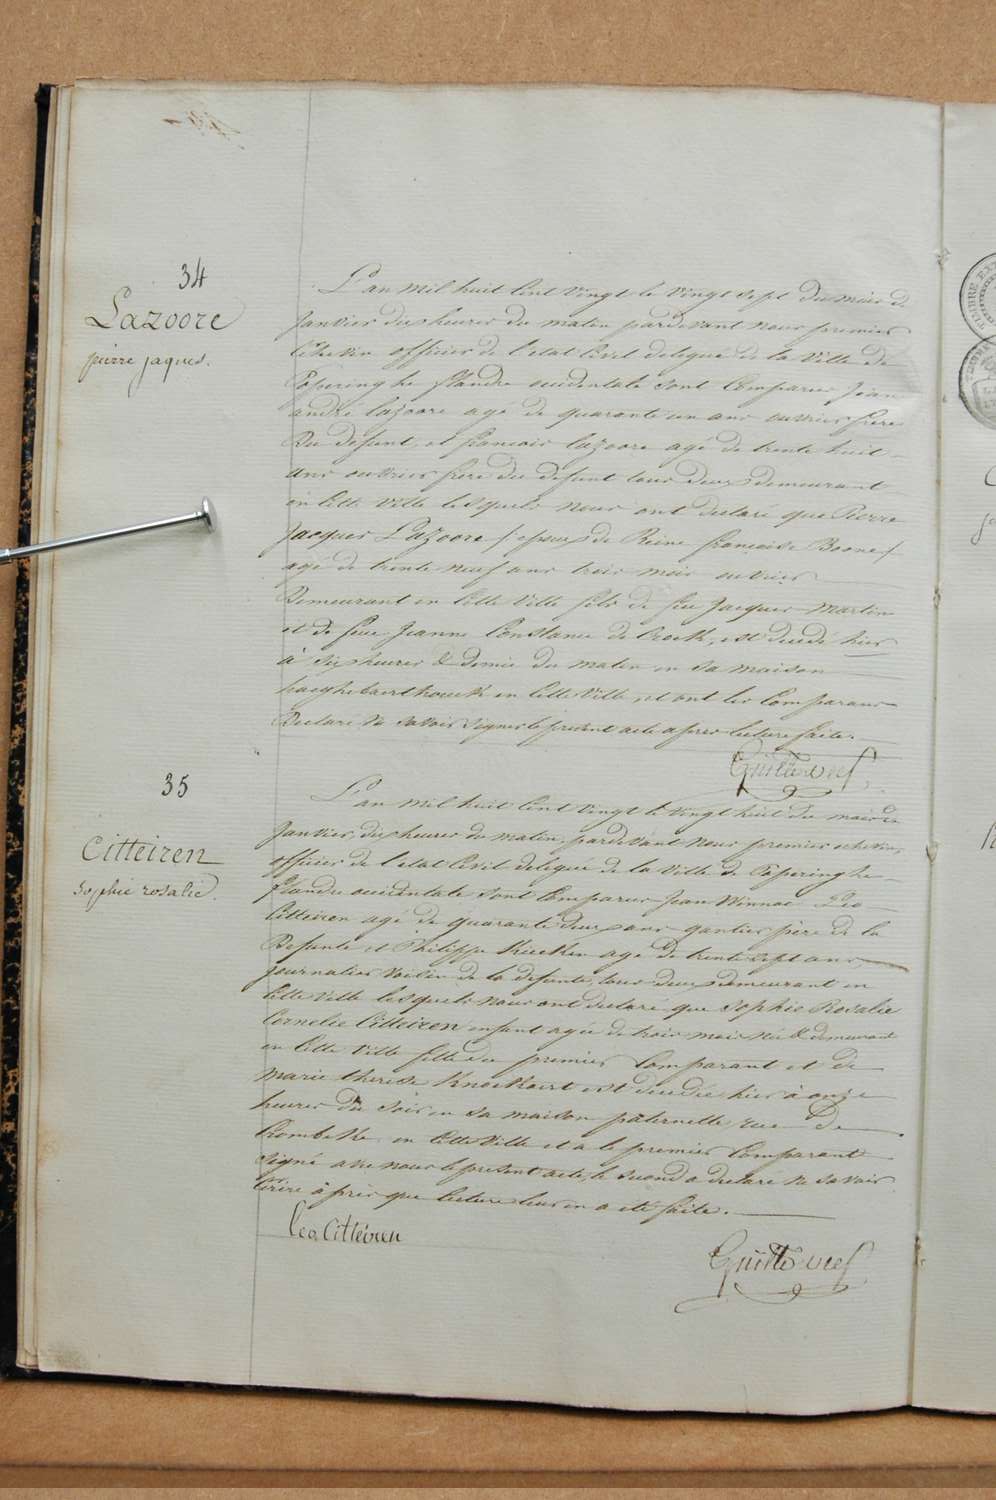 34
Lazoore
pierre jaques.
L'an mil huit Cent vingt le vingt sept du mois de
Janvier dix heures du matin pardevant nous premier
Echevin officier de l'etat Civil delegué de la Ville de
Poperinghe flandre occidentale sont Comparus Jean
andré Lazoore agé de quarante un ans ouvrier frere
Du defunt, et francois Lazoore agé de trente huit
ans ouvrier frere du defunt tous deux demeurant
en Cette Ville lesquels nous ont declaré que Pierre
Jacques Lazoore / epoux de Reine francoise Boone /
agé de trente neuf ans trois mois ouvrier
Demeurant en Cette Ville fils de feu Jacques Martin
et de feue Jeanne Constance de Crock, est decedé hier
à six heures & demie du matin en sa maison
en Cette Ville, et ont les Comparans
Declaré ne savoir signer le present acte apres lecture faite.
35
Citteiren
sophie rosalie.
L'an mil huit Cent vingt le vingt huit du mois de
Janvier, dix heures du matin, pardevant nous premier echevin,
officier de l'etat Civil delegué de la Ville de Poperinghe
flandre occidentale sont Comparus Jean Winnoc Leo
Citteiren agé de quarante deux ans gantier père de la
Defunte et Philippe Kucken agé de trente sept ans,
journalier voisin de la defunte, tous deux demeurant en
Cette Ville lesquels nous ont declaré que Sophie Rosalie
Cornelie Citteiren enfant agée de trois mois née & demeurant
en Cette Ville fille du premier Comparant et de
Marie therese Knockaert est decedée hier à onze
heures du soir en sa maison paternelle rue de
Crombeke, en Cette Ville et a le premier Comparant
signé avec nous le present acte, le second a declaré ne savoir
ecrire après que lecture leur en a été faite.
Leo Citteiren